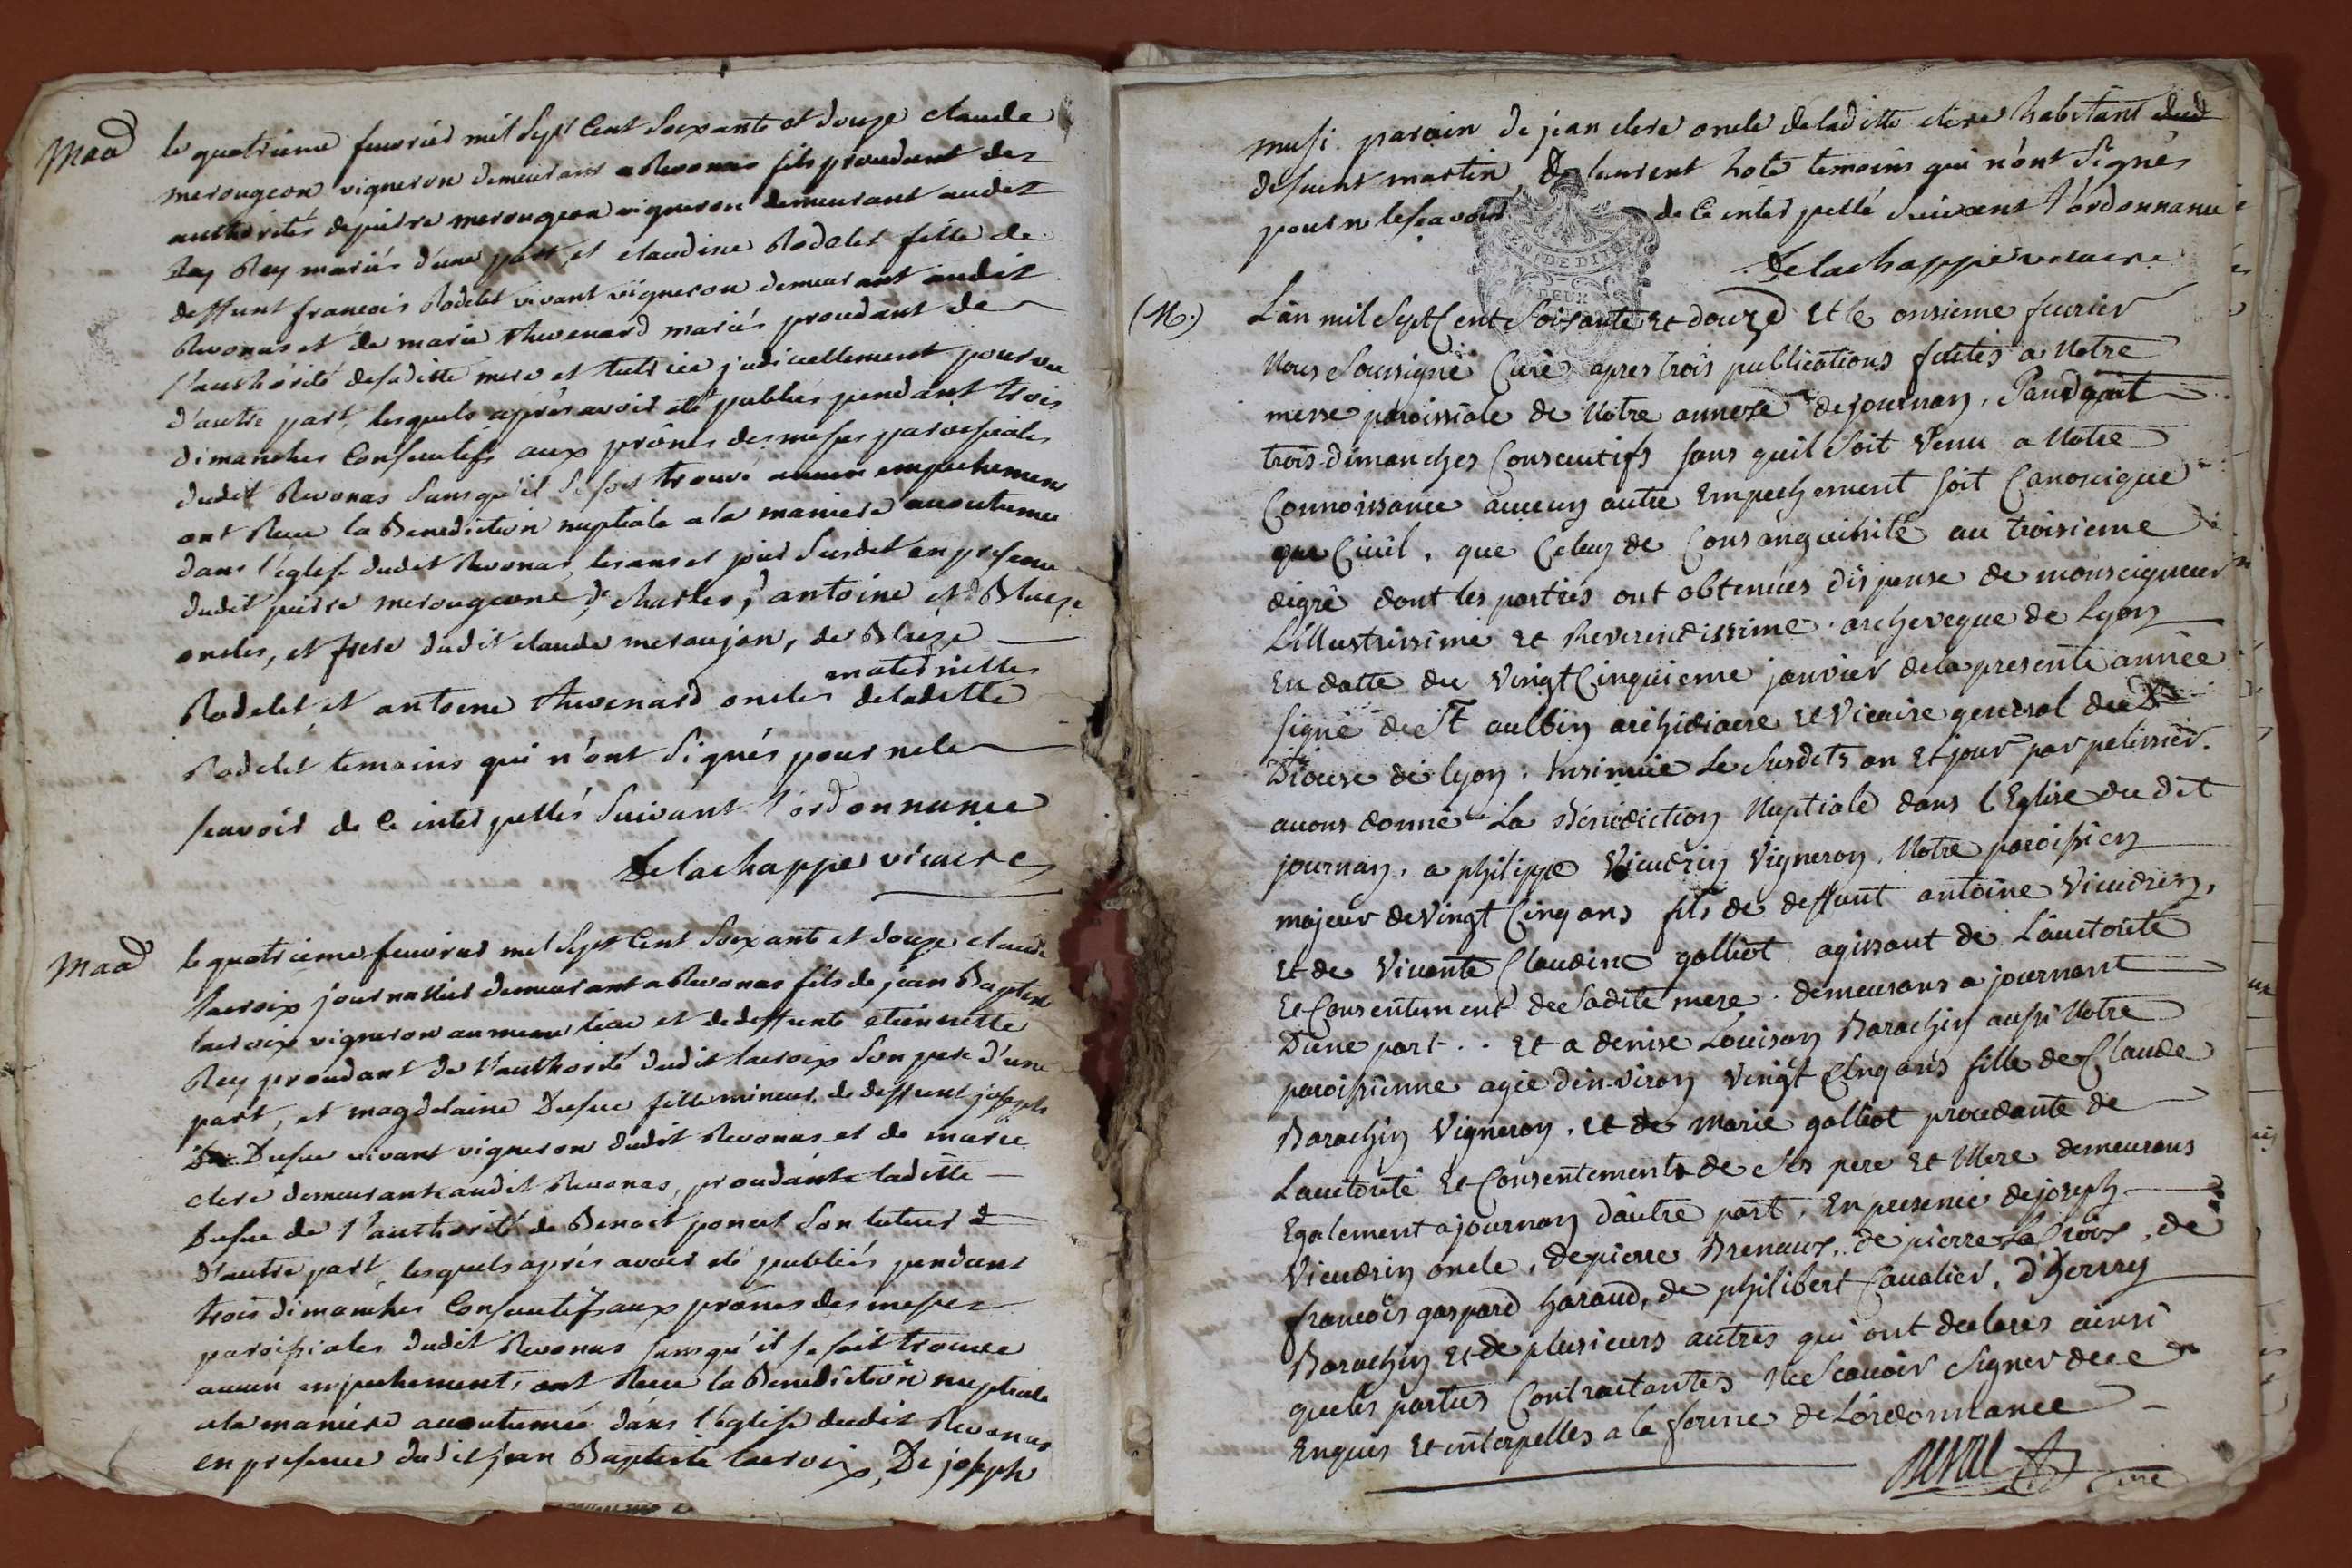 Maa
le quatrieme fevrier mil Sept Cent Soixante et douze claude
merougeon vigneron demeurant a Revonas fils proudant des
authorités de pierre merougeon vigneron demeurant audit
Rey mariés d'une part, et claudine Rodelet fille de
deffunt francois Rodelet vivant vigneron demeurant audit
Revonas et de marie thevenard mariés proudant de
l'authorité desaditte mere et tutrice judiciellement pourvue
d'autre part, lesquels après avoir eté publiés pendant trois
dimanches Consecutifs aux prônes des messes paroissiales
dudit Revonas Sans qu'il Se soit trouvé aucun empechement
ont Recu la Benediction nuptiale a la maniere accoutumee
dans l'eglise dudit Revonas, les ans et jour Susdit en presence
dudit pierre merougeone, de charles, d'antoine et d Blaize
oncles, et frere dudit claude meraujon, de Blaize
maternelles
Rodelet, et antoine thevenard oncles deladitte
Rodelet temoins qui n'ont Signés pour ne le
scavoir de Ce interpellés Suivant l'ordonnance
Delachappe vicaire
Maa
le quatrieme fevrier mil Sept Cent Soixante et douze claude
lacroix journallier demeurant a Revonas fils de jean Baptiste
lacroix vigneron au meme lieu et dedeffunte etiennette
Rey proudant de l'authorité dudit lacroix Son pere d'une
part, et magdelaine Dufue fille mineur de deffunt joseph
Dufue vivant vigneron dudit Revonas et de marie
clere demeurante audit Revonas, proudante laditte
Dufue de l'authorité de Benoit poncet Son tuteur
d'autre part, lesquels après avoir eté publiés pendant
trois dimanches Consecutifs aux prônes des messes
paroissiales dudit Revonas sans qu'il se soit trouvée
aucun empechement, ont Recu la Benediction nuptiale
a la maniere accoutumée dans l'église dudit Revonas
en presence dudit jean Baptiste lacroix, De joseph
musi parain de jean clere oncle deladitte clere habitant dud
defunt martin, De laurent hote temoins qui n'ont Signés
pour n le scavoir de Ce interpellé Suivant l'ordonnance
Delachappe vicaire
GEN DE DIJON
DEUX
(M.)
L'an mil Sept Cent Soixante et douze et le onsieme fevrier
Nous Soussigné Curé apres trois publications faites a Notre
messe paroissiale de Notre annexe de journan, Pandant
trois dimanches Consecutifs sans quil Soit Venu a Notre
Connoissance aucun autre Empechement soit Canonique
que Civil, que Celuy de Consanguinité au troisieme
digré dont les parties ont obtenües dispense de monseigneur
L'illustrissime et Reverendissime archeveque de Lyon
En datte du Vingt Cinquieme janvier dela presente année
signé de St aulbin archidiacre et Vicaire general du D
Diocese de lyon, Insinuée Le Susdits an et jour par pelissier.
avons donné La Bénédiction Nuptiale dans l'Eglise du dit
journan, a philippe Vieudrin Vigneron, Notre paroissien
majeur de Vingt Cinq ans fils de deffunt antoine Vieudrin,
Et de Vivante Claudine galliot agissant de L'auctorité
Et Consentement de Sadite mere, demeurans a journant
D'une part.. Et a denise Louison Barachin aussi Notre
paroissienne agée d'inviron Vingt Cinq ans fille de Claude
Barachin Vigneron, et de marie galliot proudante de
L'auctorité Et Consentements de Ses pere et Mere demeurans
Egalement a journan d'autre part, En presence de joseph
Vieudrin oncle, de pierre Brenaux, de pierre La Croix, de
francois gaspard haraud, de philibert Cavalier, d'
Barachin et de plusieurs autres qui ont declares ainsi
que les parties Contractantes Ne Scavoir Signer de ce
Enquis et interpelles a la forme de L'ordonnance
Curé